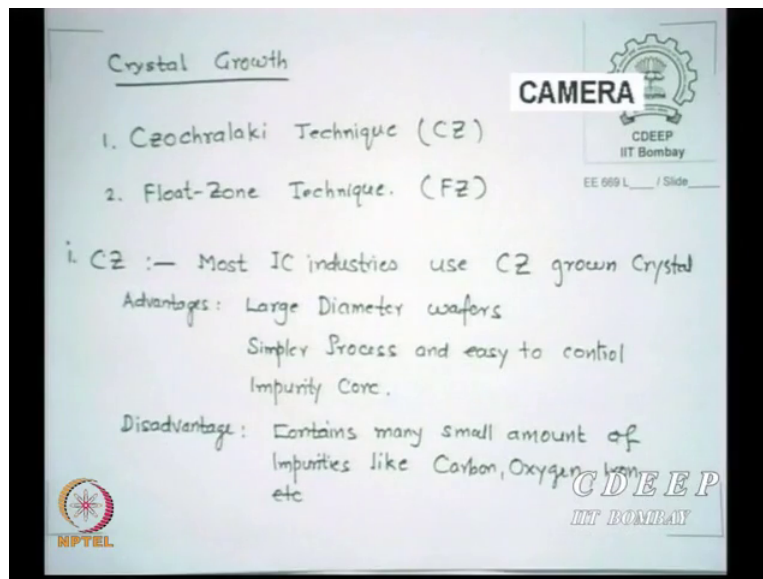 Crystal Growth
CAMERA
CDEEP
IIT Bombay
EE 669 L____ / Slide____
1. Czochralaki Technique (CZ)
2. Float-Zone Technique. (FZ)
i. CZ :— Most IC industries use CZ grown Crystal
Advantages : Large Diameter wafers
Simpler Process and easy to control
Impurity Conc.
Disadvantage : Contains many small amount of
Impurities like Carbon, Oxygen, Iron,
etc
CDEEP
IIT BOMBAY
NPTEL